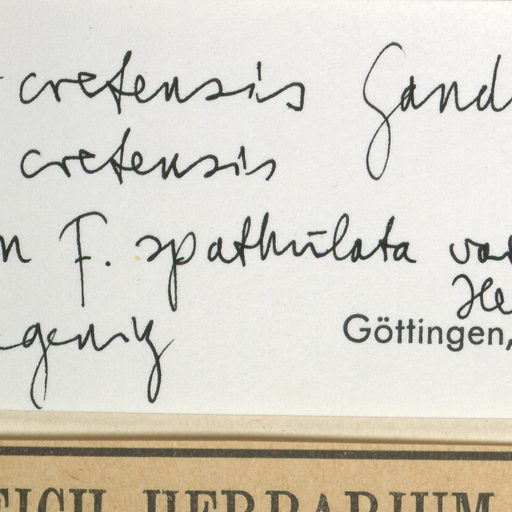 cretensis Gand
cretensis
n F. spathulata var
He
genig
Göttingen,
EICH HERBARIUM